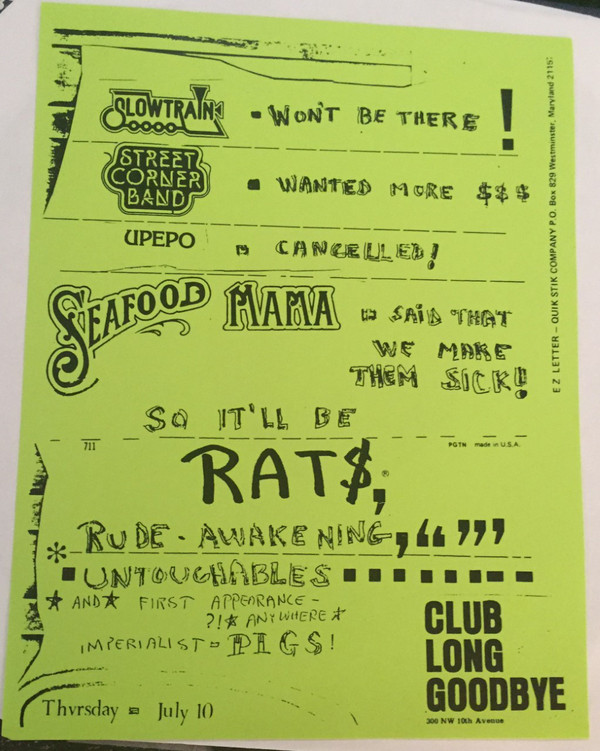 SLOWTRAIN - WON'T BE THERE !
STREET
CORNER
BAND - WANTED MORE $$$
UPEPO - CANCELLED!
SEAFOOD MAMA - SAID THAT
WE MAKE
THEM SICK!!
SO IT'LL BE
711 PGTN made in U.S.A.
RAT$,®
RUDE - AWAKENING, “ ” ’
* UNTOUCHABLES
★ AND ★ FIRST APPEARANCE -
?!★ ANYWHERE ★
IMPERIALIST - PIGS!
CLUB
LONG
GOODBYE
300 NW 10th Avenue
Thvrsday = July 10
E Z LETTER – QUIK STIK COMPANY P.O. Box 829 Westminster, Maryland 2115